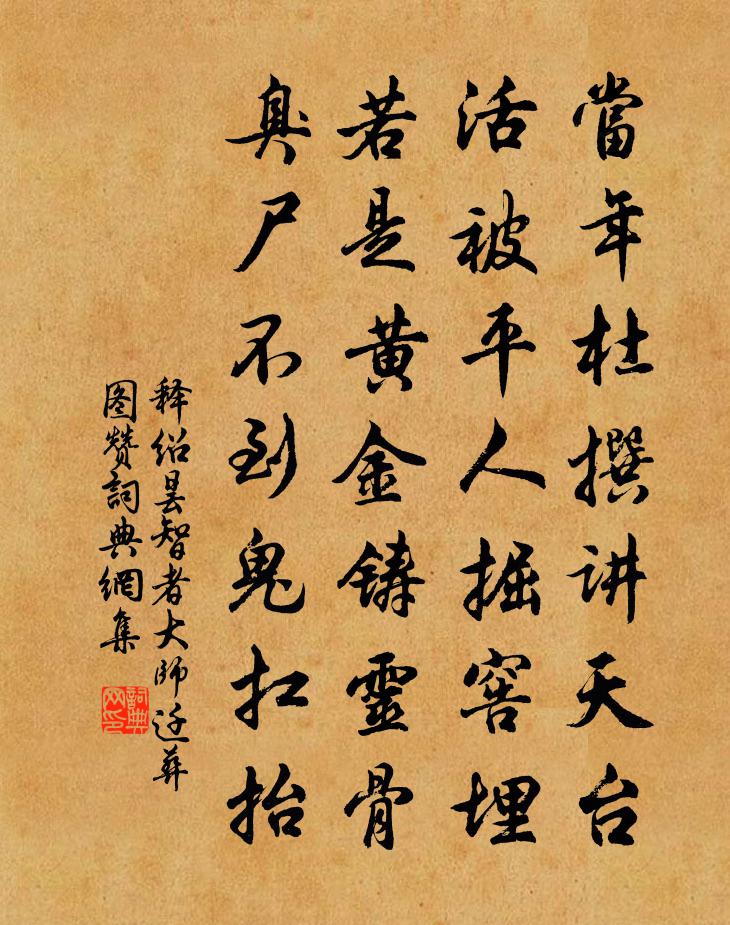 當年杜撰讲天台
活被平人掘窖埋
若是黄金铸靈骨
臭尸不到鬼扛抬
释绍昙智者大師迁葬
图赞詞典網集
詞典
网印